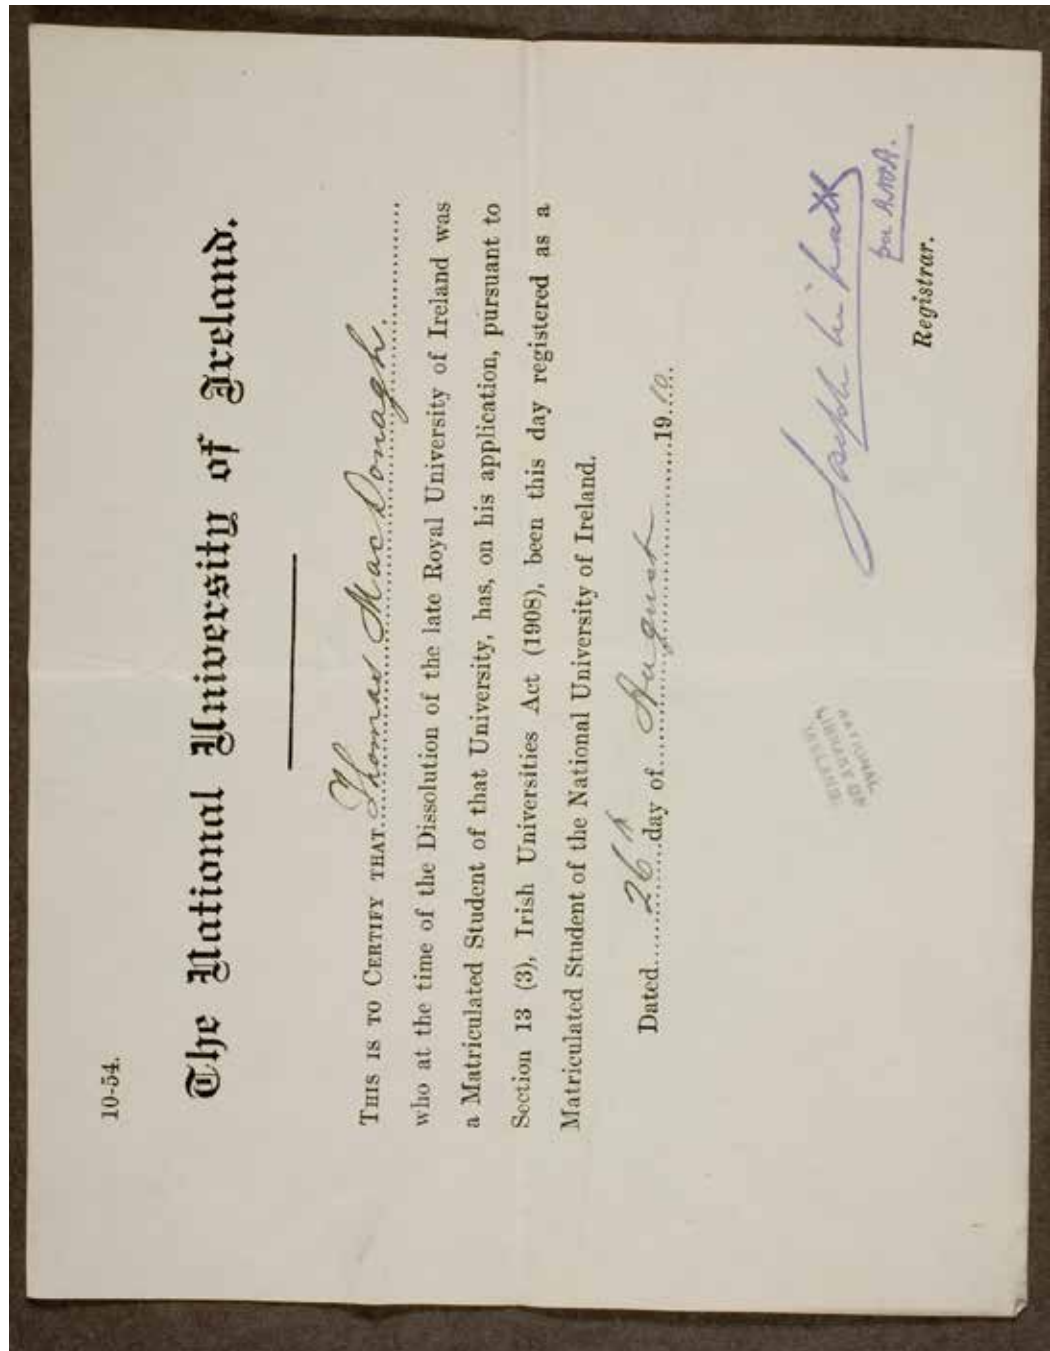 10-54.
The National University of Ireland.
THIS IS TO CERTIFY THAT Thomas MacDonagh.
who at the time of the Dissolution of the late Royal University of Ireland was
a Matriculated Student of that University, has, on his application, pursuant to
Section 13 (3), Irish Universities Act (1908), been this day registered as a
Matriculated Student of the National University of Ireland.
Dated 26th day of August 1910.
Joseph
Registrar.